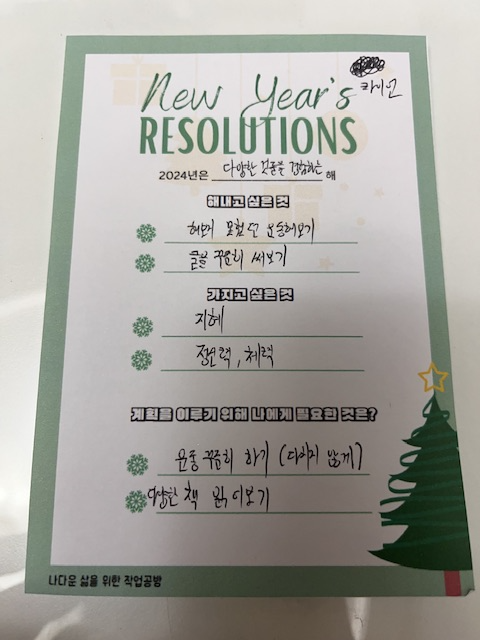 New Year's
카이먼
RESOLUTIONS
2024년은 다양한 것들을 경험하는 해
해내고 싶은 것
해보기
글을 꾸준히 써보기
가지고 싶은 것
지혜
정신력, 체력
계획을 이루기 위해 나에게 필요한 것은?
운동 꾸준히 하기 (다치지 않게)
다양한 책 읽어보기
나다운 삶을 위한 작업공방